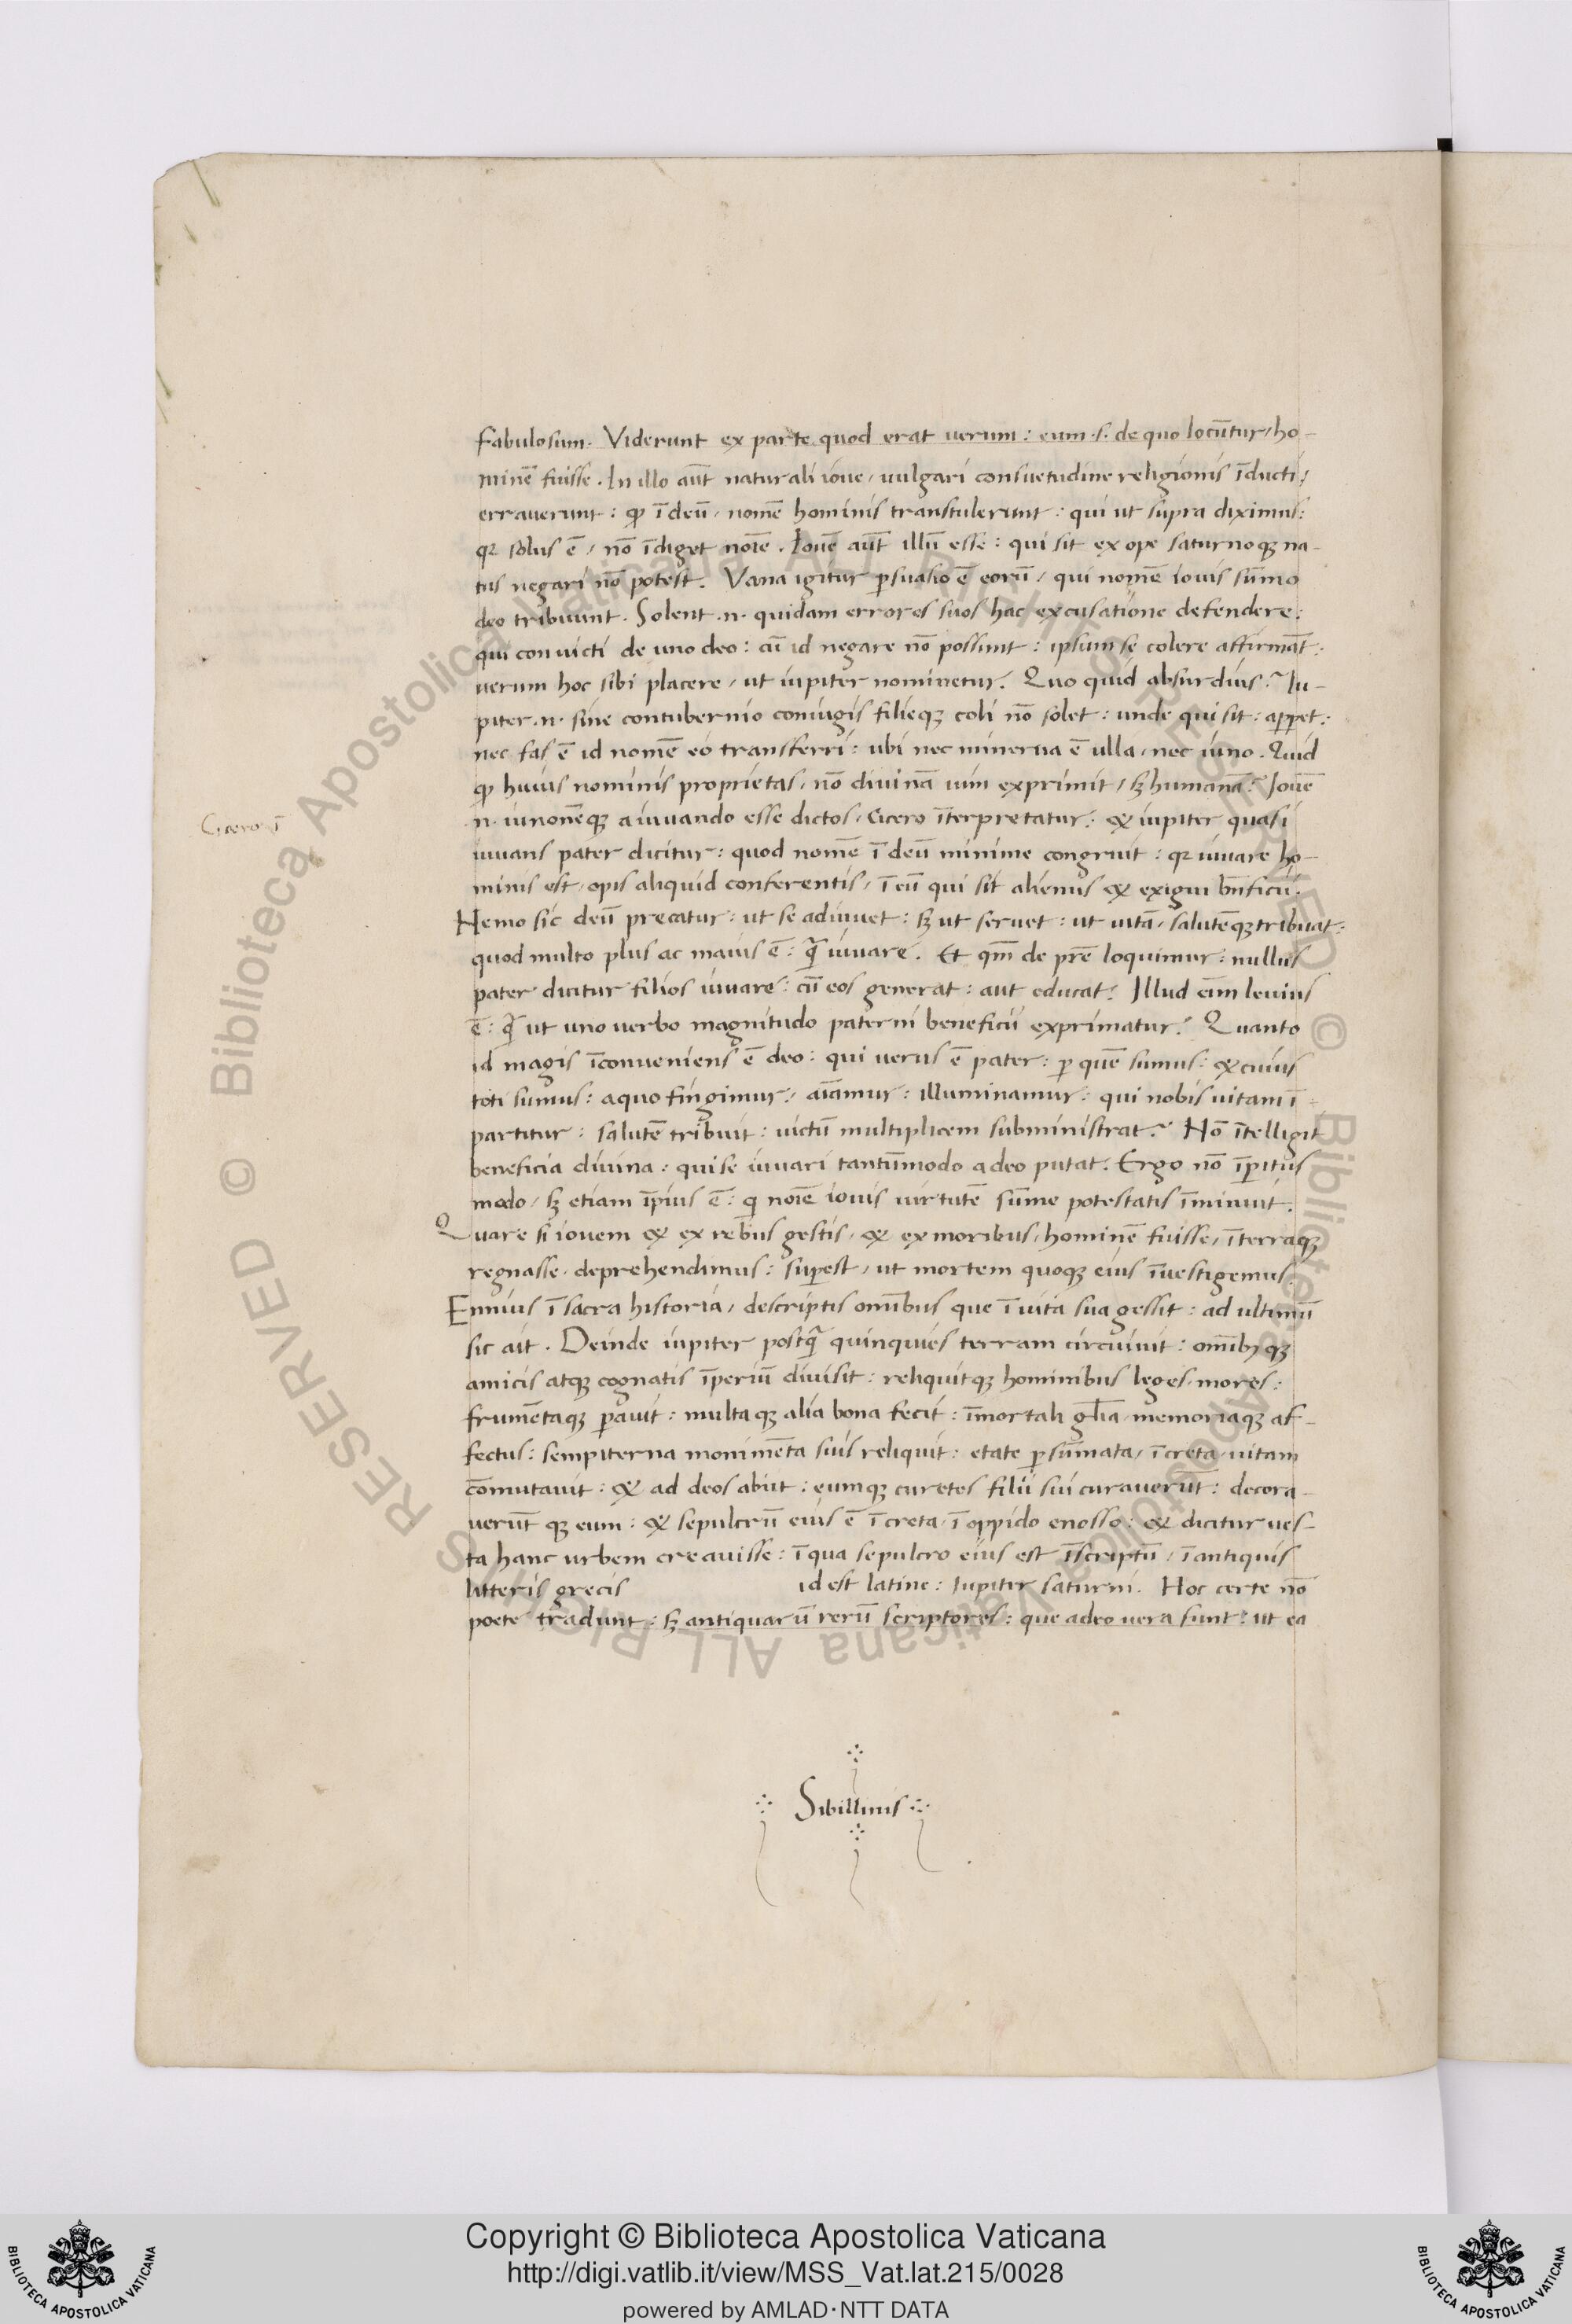 fabulosum. Viderunt ex parte quod erat uerum: eum .s. de quo locũtur, ho-
minẽ fuisse. In illo aũt naturali ioue, uulgari consuetudine religionis ĩducti,
errauerunt: ꝙ ĩ deũ, nomẽ hominis transtulerunt: qui ut supra diximus:
qꝛ solus ẽ, nõ ĩdiget noĩe. Iouẽ aũt illũ esse: qui sit ex ope saturnoqꝫ na-
tus negari nõ potest. Vana igitur ꝑsuasio ẽ eorũ, qui nomẽ iouis sũmo
deo tribuunt. Solent .n. quidam errores suos hac excusatione defendere:
qui conuicti de uno deo: cũ id negare nõ possunt: ipsum se colere affirmãt:
uerum hoc sibi placere, ut iupiter nominetur. Quo quid absurdius? Iu-
piter .n. sine contubernio coniugis filieqꝫ coli nõ solet: unde qui sit: apꝑet:
nec fas ẽ id nomẽ eo transferri: ubi nec minerua ẽ ulla, nec iuno. Quid
ꝙ huius nominis proprietas, nõ diuinã uim exprimit, sꝫ humanã? Iouẽ
.n. iunonẽqꝫ a iuuando esse dictos, Cicero ĩterpretatur: & iupiter quasi
Cicero ĩ
iuuans pater dicitur: quod nomẽ ĩ deũ minime congruit: qꝛ iuuare ho-
minis est, opis aliquid conferentis, ĩ eũ qui sit alienus & exigui bñficii.
Nemo sic deũ precatur: ut se adiuuet: sꝫ ut seruet: ut uitã, salutẽqꝫ tribuat:
quod multo plus ac maius ẽ: q̃ iuuare. Et qm̃ de pr̃e loquimur: nullus
pater dicitur filios iuuare: cũ eos generat: aut educat. Illud eim̃ leuius
ẽ: q̃ ut uno uerbo magnitudo paterni beneficii exprimatur. Quanto
id magis ĩconueniens ẽ deo: qui uerus ẽ pater: ꝑ quẽ sumus: & cuius
toti sumus: a quo fingimur, aĩamur: illuminamur: qui nobis uitam ĩ-
partitur: salutẽ tribuit: uictũ multiplicem subministrat? Nõ ĩtelligit
beneficia diuina: qui se iuuari tantũmodo a deo putat. Ergo nõ ĩꝑitus
modo, sꝫ etiam ĩpius ẽ: q̃ noĩe iouis uirtutẽ sũme potestatis ĩminuit.
Quare si iouem & ex rebus gestis, & ex moribus, hominẽ fuisse, ĩ terraqꝫ
regnasse, deprehendimus: suꝑest, ut mortem quoqꝫ eius ĩuestigemus.
Ennius ĩ sacra historia, descriptis omĩbus que ĩ uita sua gessit: ad ultimũ
sic ait. Deinde iupiter postq̃ quinquies terram circuiuit: omĩbꝫ qꝫ
amicis atqꝫ cognatis ĩperiũ diuisit: reliquitqꝫ hominibus leges, mores:
frumẽtaqꝫ ꝑauit: multaqꝫ alia bona fecit: ĩmortali gl̃ia, memoriaqꝫ af-
fectus: sempiterna monimẽta suis reliquit: etate ꝑsũmata, ĩ creta, uitam
cõmutauit: & ad deos abiit: eumqꝫ curetes filii sui curauerũt: decora-
uerũt qꝫ eum: & sepulcrũ eius ẽ ĩ creta, ĩ oppido enosso: & dicitur ues-
ta hanc urbem creauisse: ĩ qua sepulcro eius est ĩscriptũ, ĩ antiquis
litteris grecis id est latine: Iupiter saturni. Hoc certe nõ
poete tradunt: sꝫ antiquarũ rerũ scriptores: que adeo uera sunt: ut ea
Sibillinis
© Biblioteca Apostolica Vaticana ALL RIGHTS RESERVED
© Biblioteca Apostolica Vaticana ALL RIGHTS RESERVED
Copyright © Biblioteca Apostolica Vaticana
http://digi.vatlib.it/view/MSS_Vat.lat.215/0028
powered by AMLAD·NTT DATA
BIBLIOTECA APOSTOLICA VATICANA
BIBLIOTECA APOSTOLICA VATICANA